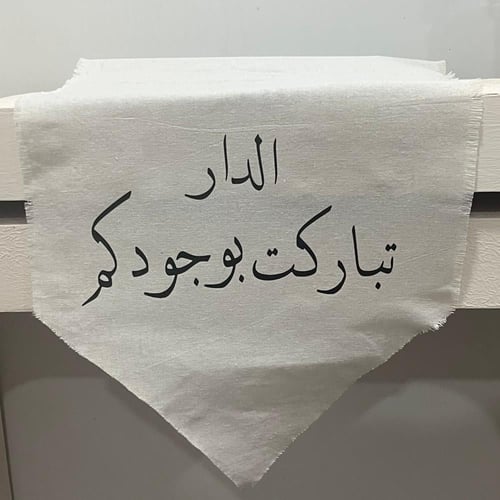 الدار
تباركت بوجودكم